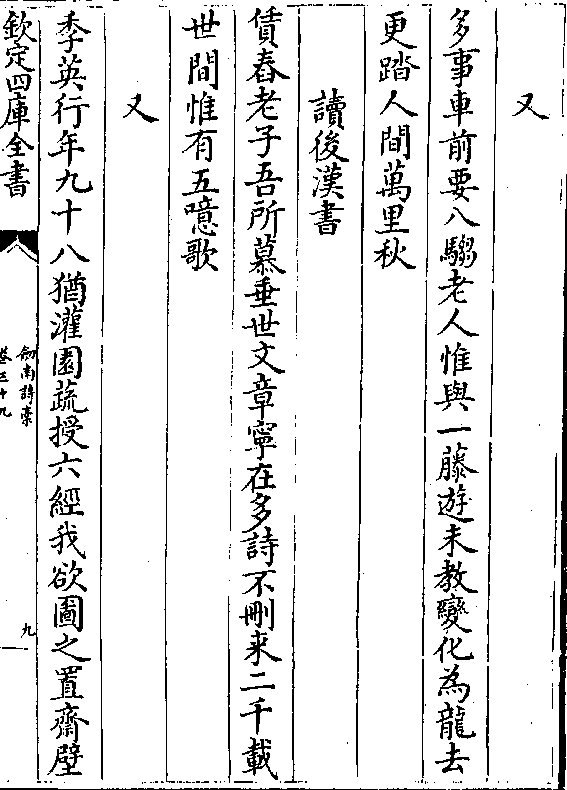 又
多事車前要八騶老人惟與一藤遊未教變化為龍去
更踏人間萬里秋
讀後漢書
賃舂老子吾所慕垂世文章寧在多詩不刪来二千載
世間惟有五噫歌
又
季英行年九十八猶灌園蔬授六經我欲圖之置齋壁
欽定四庫全書
劎南詩稾
卷三十九
九